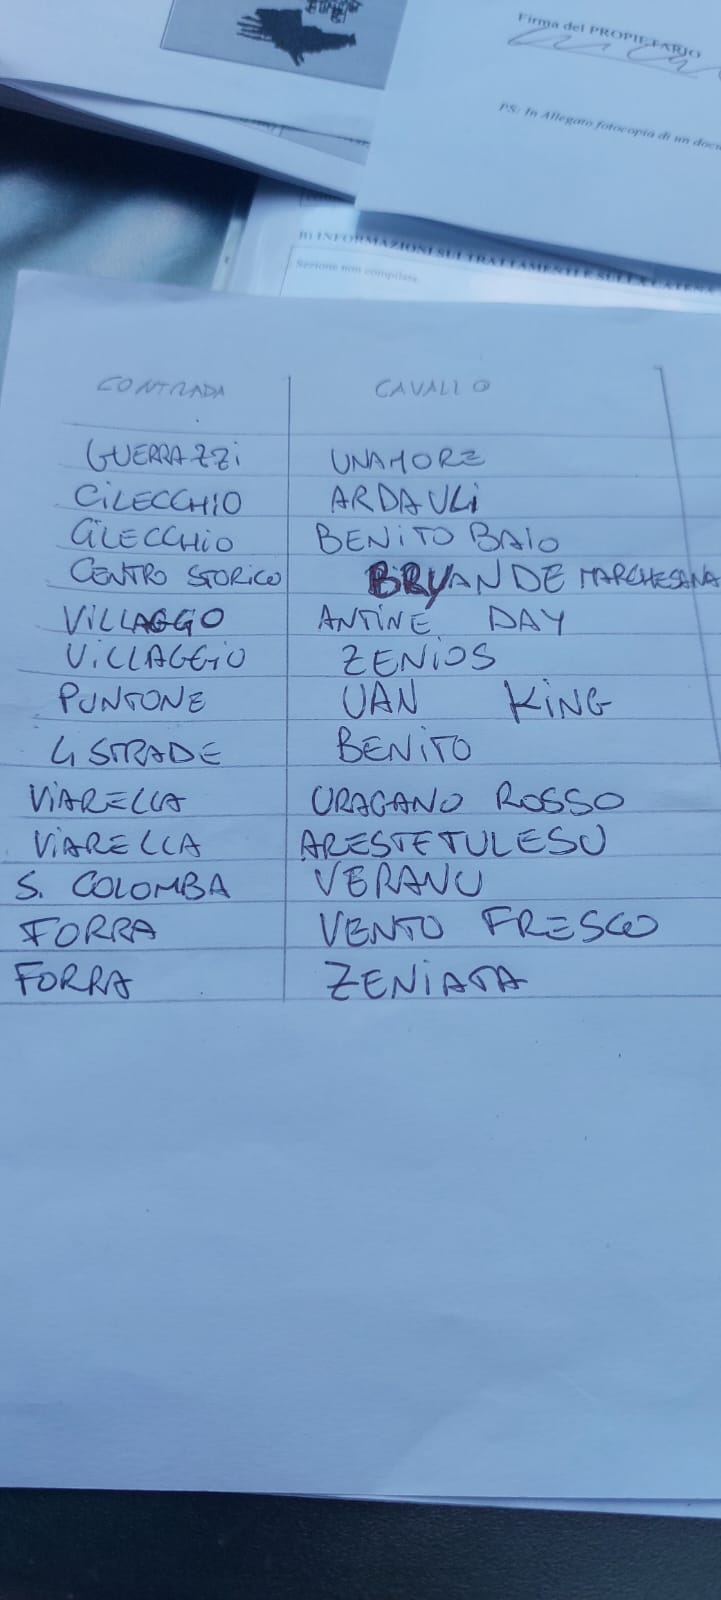 Firma del PROPIETARIO
PS: In Allegato fotocopia di un docu
B) INFORMAZIONI SUI TRATTAMENTI E SULLA CATENA
Sezione non compilata
CONTRADA CAVALLO
GUERRAZZi UNAMORE
CiLECCHIO ARDAULi
CiLECCHiO BENiTO BAIO
CENTRO STORiCO BRYAN DE MARCHESANA
ViLLAGGiO ANTiNE DAY
ViLLAGGiO ZENiOS
PUNTONE UAN KiNG
4 STRADE BENiTO
ViARELLA URAGANO ROSSO
ViARELLA ARESTETULESU
S. COLOMBA VERANU
FORRA VENTO FRESCO
FORRA ZENiATA